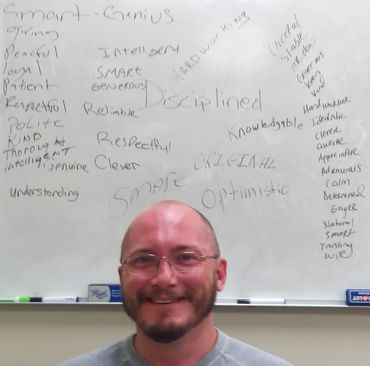 Smart-Genius
giving
Peaceful
loyal
Patient
Respectful
Polite
KIND
Thoughtful
intelligent
genuine
understanding
Intelligent
SMART
GENEROUS
Reliable
Respectful
Clever
HARDWORKING
Disciplined
Knowledgable
ORIGINAL
Optimistic
Cheerful
Stable
Generous
Kind
Hardworker
Idealistic
Clever
aware
Appreciative
Calm
Determined
Eager
Natural
Smart
Trusting
Wise